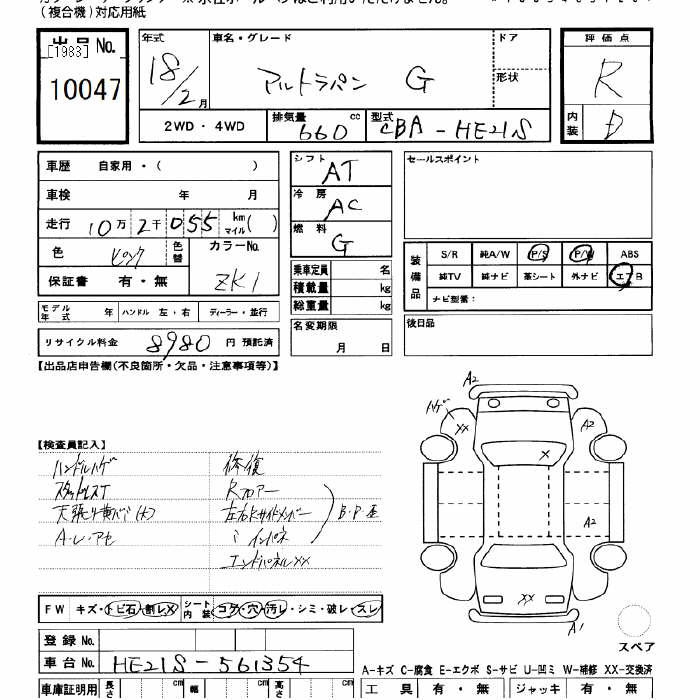 (複合機)対応用紙
出品 No.
[1983]
10047
年式
18/2月
車名・グレード
アルトラパン G
ドア
形状
2WD・4WD
排気量 660 cc
型式 CBA-HE21S
評価点
R
内装 D
車歴 自家用・( )
車検 年 月
走行 10万2千055 km マイル( )
色 ピンク
色替
カラーNo. ZK1
保証書 有・無
モデル年式 年
ハンドル 左・右
ディーラー・並行
リサイクル料金 8980 円 預託済
シフト AT
冷房 AC
燃料 G
乗車定員 名
積載量 kg
総重量 kg
名変期限
月 日
セールスポイント
装備品
S/R 純A/W P/S P/W ABS
純TV 純ナビ 革シート 外ナビ エアB
ナビ型番:
後日品
【出品店申告欄(不良箇所・欠品・注意事項等)】
【検査員記入】
ハンドルハゲ
A・レ・アセ
修復
Rフロアー
左右Rサイドメンバー
〃 インパネ
エンドパネルXX
A2
ハゲ
XX
A2
X
A2
XX
A1
スペア
FW キズ・トビ石・割レX
シート内装 コゲ・穴・汚レ・シミ・破レ・スレ
登録 No.
車台 No. HE21S-561354
A-キズ C-腐食 E-エクボ S-サビ U-凹ミ W-補修 XX-交換済
車庫証明用 長さ cm 幅 cm 高さ cm
工具 有・無 ジャッキ 有・無